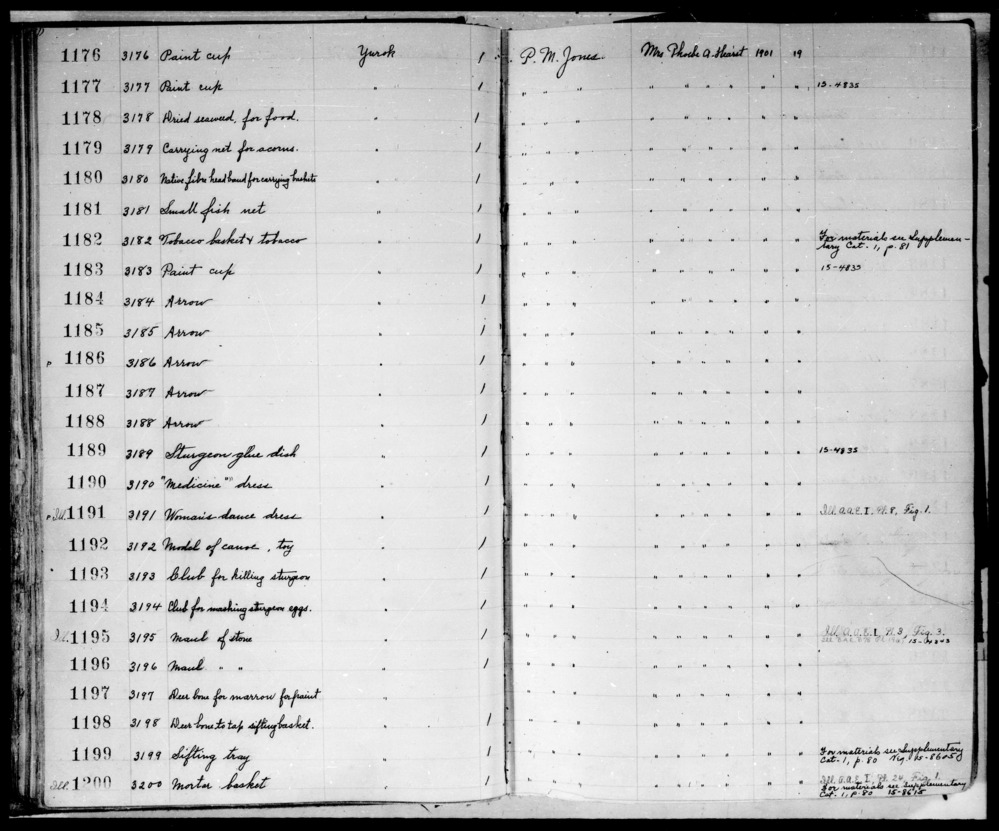 1176 3176 Paint cup Yurok 1 P. M. Jones. Mrs Phoebe A. Hearst 1901 19
1177 3177 Paint cup " 1 " " " " " " " " " 15-4835
1178 3178 Dried seaweed, for food. " 1 " " " " " " " " "
1179 3179 Carrying net for acorns. " 1 " " " " " " " " "
1180 3180 Native fibre head band for carrying baskets " 1 " " " " " " " " "
1181 3181 Small fish net " 1 " " " " " " " " "
1182 3182 Tobacco basket & tobacco " 1 " " " " " " " " " For materials see Supplemen-
tary Cat. 1, p. 81
1183 3183 Paint cup " 1 " " " " " " " " " 15-4835
1184 3184 Arrow " 1 " " " " " " " " "
1185 3185 Arrow " 1 " " " " " " " " "
P 1186 3186 Arrow " 1 " " " " " " " " "
1187 3187 Arrow " 1 " " " " " " " " "
1188 3188 Arrow " 1 " " " " " " " " "
1189 3189 Sturgeon glue dish " 1 " " " " " " " " " 15-4835
1190 3190 "Medicine" dress " 1 " " " " " " " " "
P Ill. 1191 3191 Woman's dance dress " 1 " " " " " " " " " Ill. A.A.E. I, Pl. 8, Fig. 1.
1192 3192 Model of canoe, toy " 1 " " " " " " " " "
1193 3193 Club for killing sturgeon " 1 " " " " " " " " "
1194 3194 Club for mashing sturgeon eggs. " 1 " " " " " " " " "
Ill. 1195 3195 Maul of stone " 1 " " " " " " " " " Ill. A.A.E. I, Pl. 3, Fig. 3.
1196 3196 Maul " " " 1 " " " " " " " " "
1197 3197 Deer bone for marrow for paint " " " " " " " " " "
1198 3198 Deer bone to tap sifting basket. " 1 " " " " " " " " "
1199 3199 Sifting tray " 1 " " " " " " " " " For materials see Supplementary
Cat. 1, p. 80 Neg. 15-8605
Ill. 1200 3200 Mortar basket " 1 " " " " " " " " " Ill. A.A.E. I, Pl. 24, Fig. 1.
For materials see Supplementary
Cat. 1, p. 80 15-8615